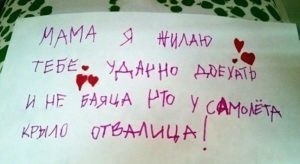 МАМА Я ЖИЛАЮ
ТЕБЕ УДАЧНО ДОЕХАТЬ
И НЕ БАЯЦА ЧТО У САМОЛЁТА
КРЫЛО ОТВАЛИЦА!